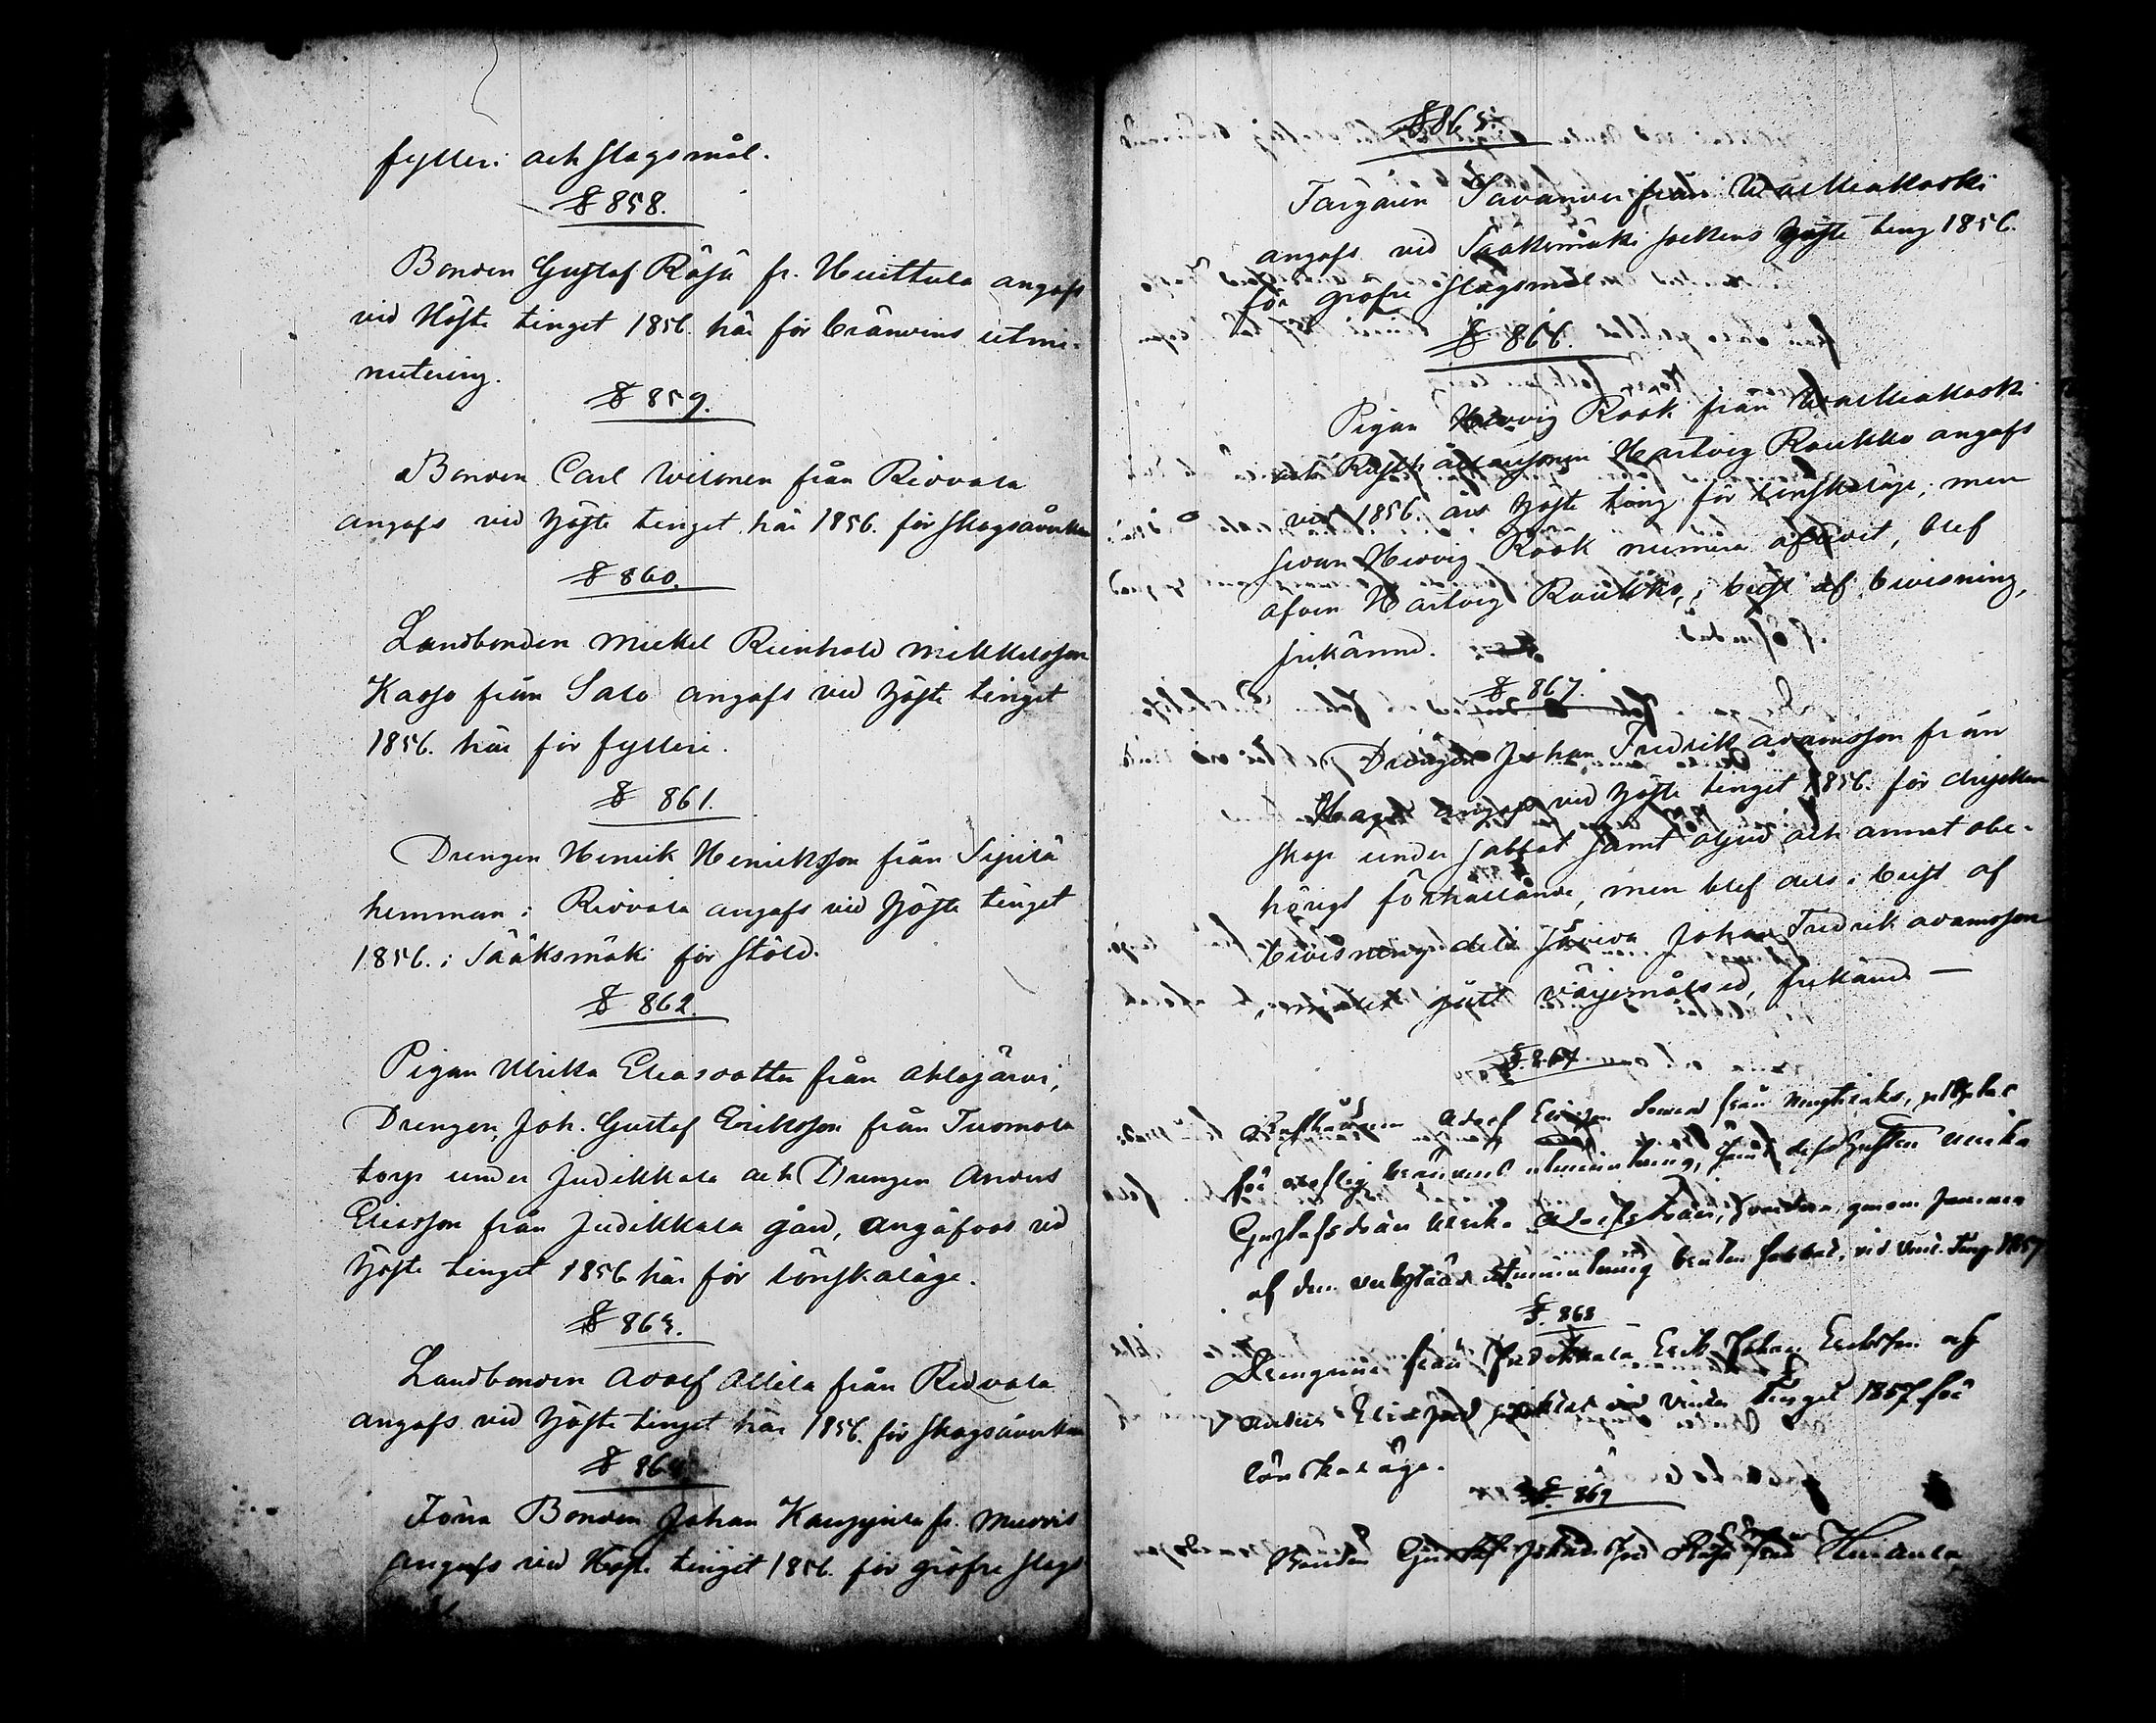 fylleri och slagsmål.
§ 858.
Bonden Gustaf Räsä fr. Huittula angafs
vid Höste tinget 1856. här för bränvins utmi-
nutering.
§ 859.
Bonden Carl Wilonen från Ridvala
angafs vid Höste tinget här 1856. för skogsåverkan
§ 860.
Landbonden Mickel Reinhold Mikkelsson
Kasso från Salo angafs vid Höste tinget
1856. här för fylleri.
§ 861.
Drengen Henrik Henriksson från Sipilä
hemman i Ridvala angafs vid Höste tinget
1856. i Sääksmäki för stöld.
§ 862.
Pigan Ulrika Eliasdotter från Ahlajärvi,
Drengen, Joh. Gustaf Eriksson från Tuomola
torp under Judikkala och Drengen Anders
Eliasson från Judikkala gård, angåfvos vid
Höste tinget 1856 här för lönskaläge.
§ 863.
Landbonden Adolf Allila från Ridvala
angafs vid Höste tinget här 1856. för skogsåverkan
§ 864.
Förra Bonden Johan Kauppila fr.
angafs vid Höste tinget 1856. för gröfre slags
§ 865.
Färgaren Savander från Walkiakoski
angafs vid Sääksmäki sockens Höste ting 1856.
för grofre slagsmål
§ 866.
Pigan Hedvig Rook från Walkiakoski
och Hartvig Roukko angafs
vid 1856. års Höste ting för lönskaläge, men
sedan Hedvig Rook numera aflidit, blef
äfven Hartvig Roukko, i brist af bevisning,
frikännd.
§ 867.
Drängen Johan Fredrik Adamsson från
angafs vid Höste tinget 1856. för dryckens
skap under sabbat samt oljud och annat obe-
hörigt förhållande, men blef dels i brist af
bevisning dels sedan Johan Fredrik Adamsson
målet gått värjemåls ed, frikännd —
§ 867
Adolf från
för olaflig bränvins utminutering, samt Ulrika
Gustafsdotter Ulrika genom
af den utminutering vid Vint. Ting 1857
§ 868
Drengarne från Judikkala Erik Johan Eriksson och
Anders Eliasson vid Vinter Tinget 1857 för
lönskaläge.
§ 869
Bonden Gustaf Räsä från Huittula